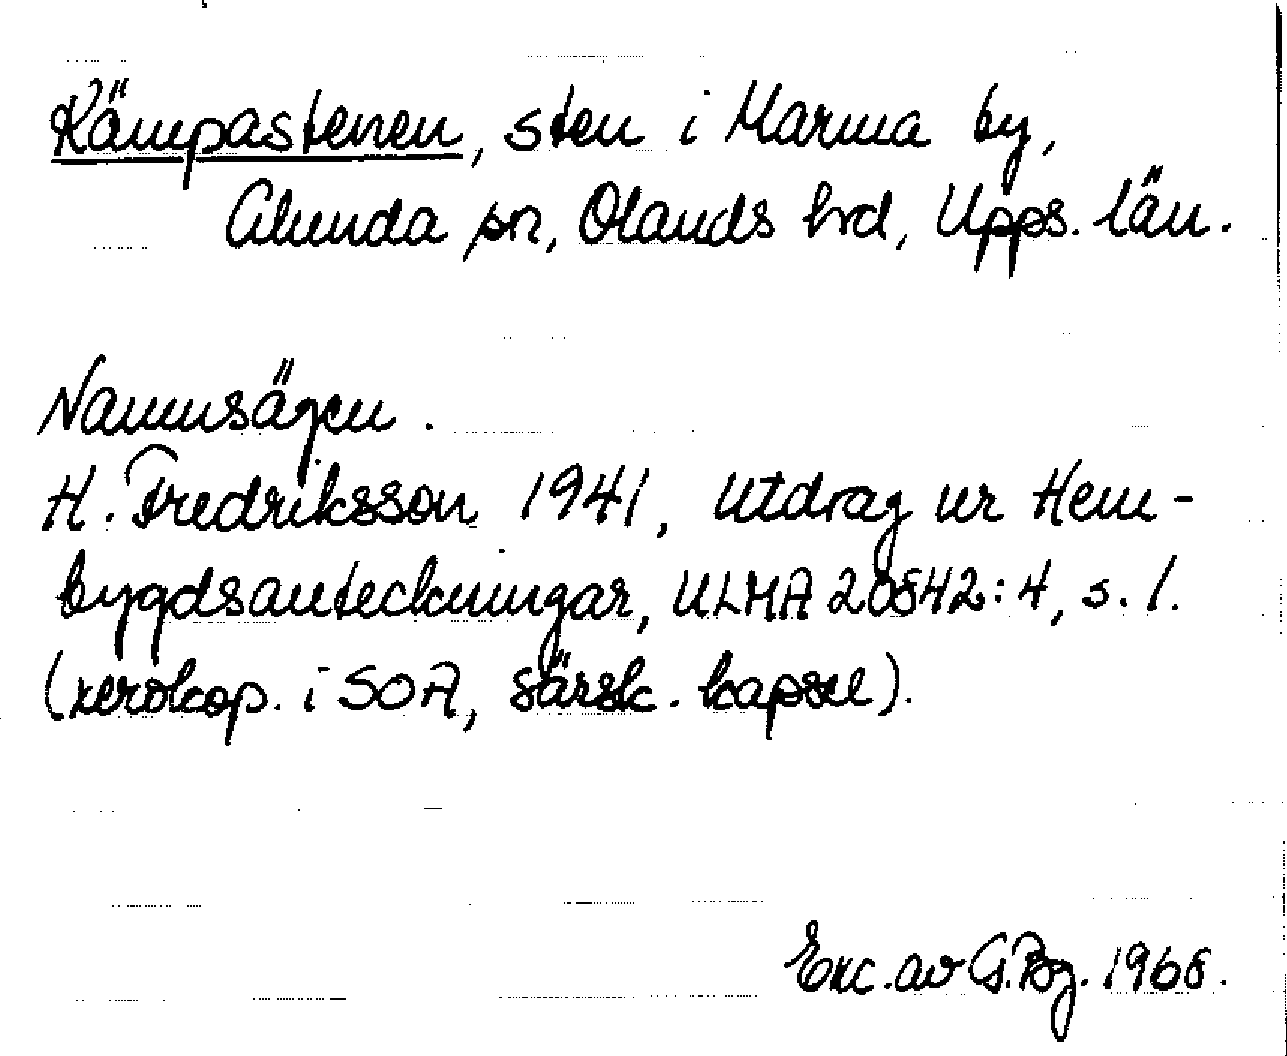 Kämpastenen, sten i Marma by,
Alunda sn, Olands hrd, Upps. län.
Namnsägen.
H. Fredriksson 1941, Utdrag ur Hem-
bygdsanteckningar, ULMA 20542:4, s. 1.
(xerokop. i SOA, särsk. kapsel).
Exc. av G. Bg. 1968.